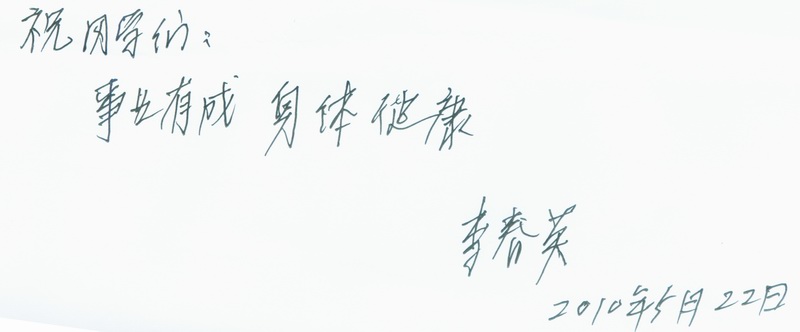 祝同学们：
事业有成 身体健康
李春英
2010年5月22日